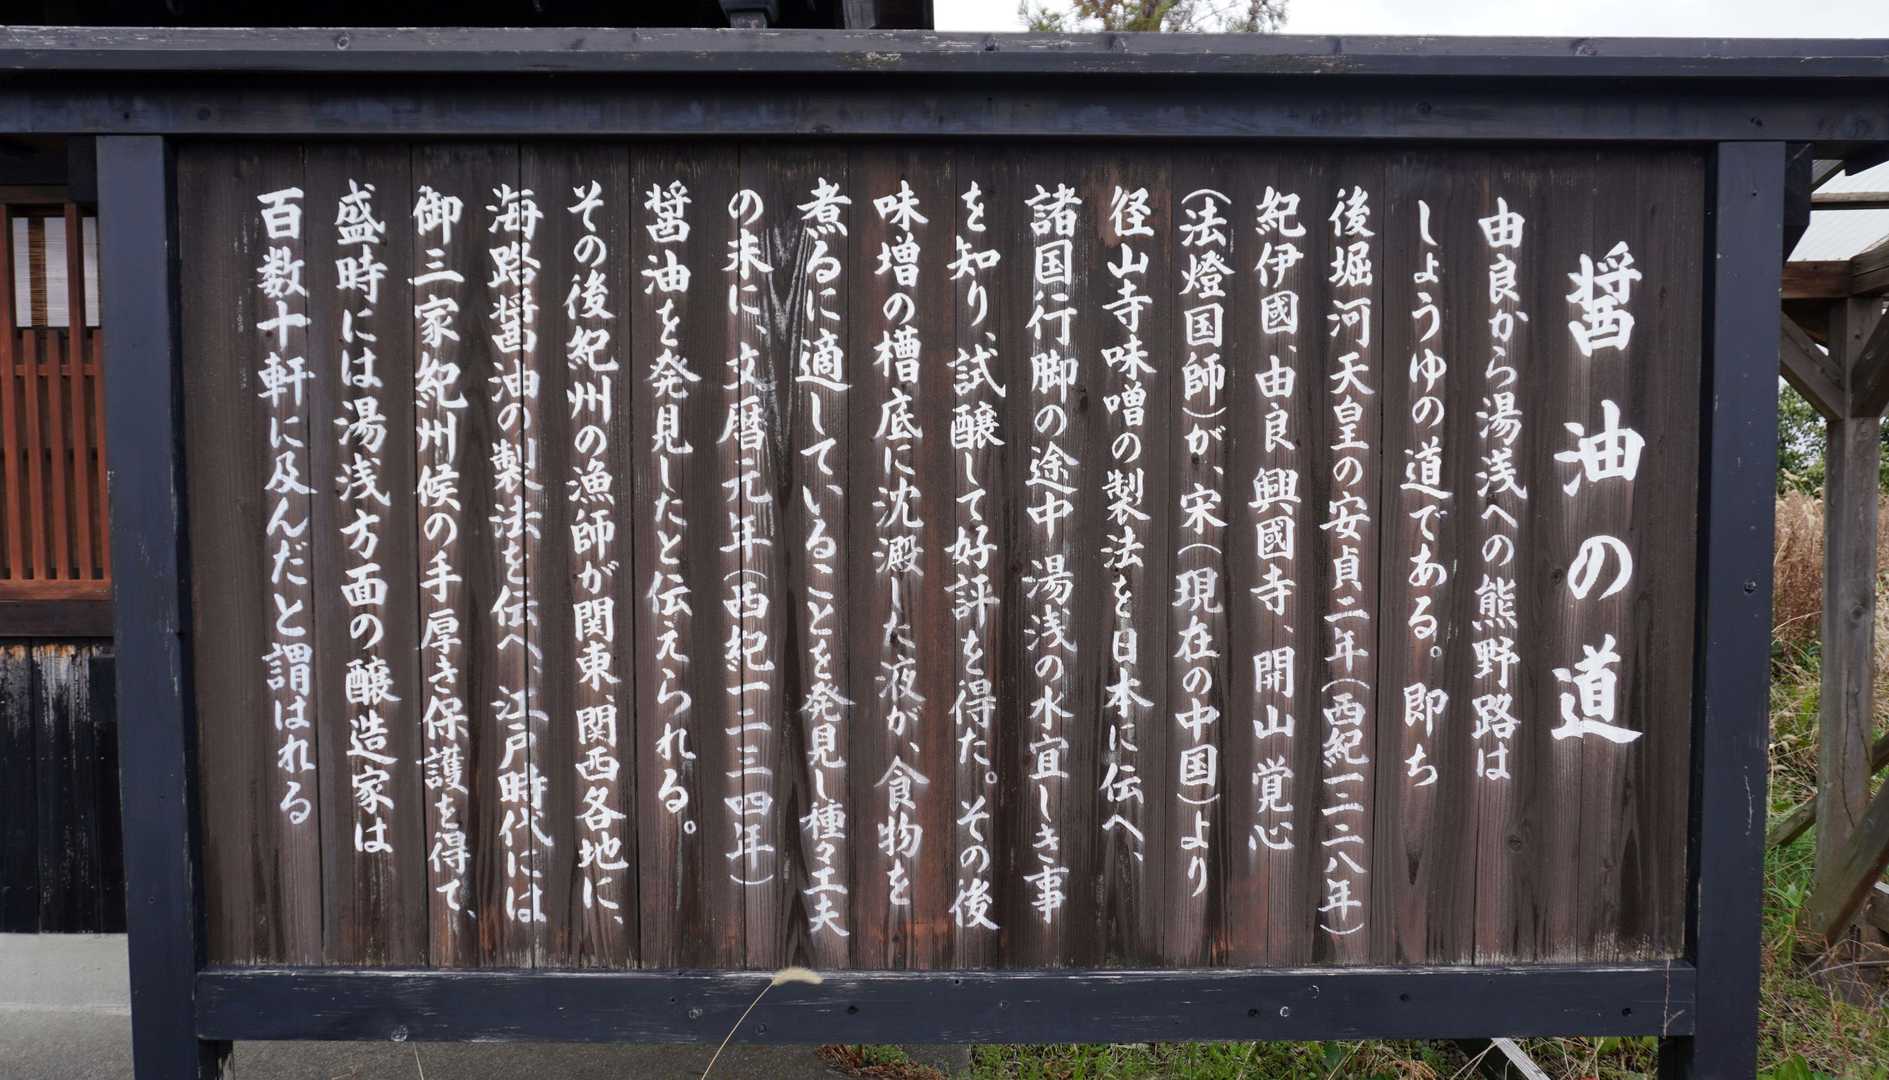 醤油の道
由良から湯浅への熊野路は
しょうゆの道である。即ち
後堀河天皇の安貞二年(西紀一二二八年)
紀伊國、由良 興國寺、開山 覚心
(法燈国師)が、宋(現在の中国)より
径山寺味噌の製法を日本に伝へ、
諸国行脚の途中 湯浅の水宜しき事
を知り、試醸して好評を得た。その後
味増の槽底に沈澱した液が、食物を
煮るに適していることを発見し種々工夫
の末に、文暦元年(西紀一二三四年)
醤油を発見したと伝えられる。
その後紀州の漁師が関東、関西各地に、
海路醤油の製法を伝へ、江戸時代には
御三家紀州候の手厚き保護を得て、
盛時には湯浅方面の醸造家は
百数十軒に及んだと謂はれる